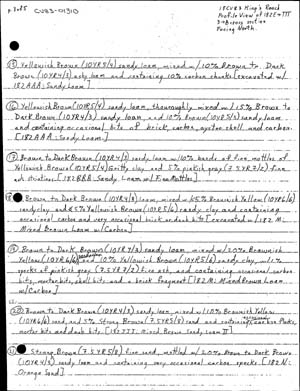 p 3 of 5
CV83-01313
18CV83 King's Reach
Profile View of 182E-III
3rd Bisony section
Facing North.
(15) Yellowish Brown (10YR5/4) sandy loam, mixed w/ 10% Brown to Dark
Brown (10YR4/3) ashy loam and containing 10% carbon chunks [excavated w/
182AAA: Sandy Loam]
(16) Yellowish Brown (10YR5/4) sandy loam, thoroughly mixed w/ 15% Brown to
Dark Brown (10YR4/3) sandy loam, and 10% Brown (10YR5/3) sandy loam
and containing occasional bits of brick, carbon, oyster shell and carbon.
[182AAA: Sandy Loam]
(17) Brown to Dark Brown (10YR4/3) sandy loam w/ 10% bands of fine mottles of
Yellowish Brown (10YR5/6) silty clay, and 5% pinkish gray (7.5YR7/2) fine
ash striations. [182BBB: Sandy Loam w/ Fine Mottles]
Brown to Dark Brown (10YR4/3) sandy loam mixed w/ 15% Brownish Yellow (10YR6/6)
sandy clay and 5% Yellowish Brown (10YR5/6) sandy clay and containing
occasional carbon and very occasional brick and daub bits [excavated w/ 182M:
Mixed Brown Loam w/ Carbon]
(19) Brown to Dark Brown (10YR4/3) sandy loam mixed w/ 20% Brownish
Yellow (10YR6/6) and 10% Yellowish Brown (10YR5/8) sandy clay, w/ 1%
specks of pinkish gray (7.5YR7/2) fine ash, and containing occasional carbon
bits, mortar bits, shell bits and a brick fragment [182M: Mixed Brown Loam
w/ Carbon]
(20) Brown to Dark Brown (10YR4/3) sandy loam mixed w/ 10% Brownish Yellow
(10YR6/6) sand, and 5% Strong Brown (7.5YR5/8) sand and containing carbon flecks,
mortar bits and daub bits [182III: Mixed Brown Sandy Loam II]
Strong Brown (7.5YR5/8) fine sand, mottled w/ 40% Brown to Dark Brown
(10YR4/3) sandy loam and containing very occasional carbon specks [182N:
Orange Sand]